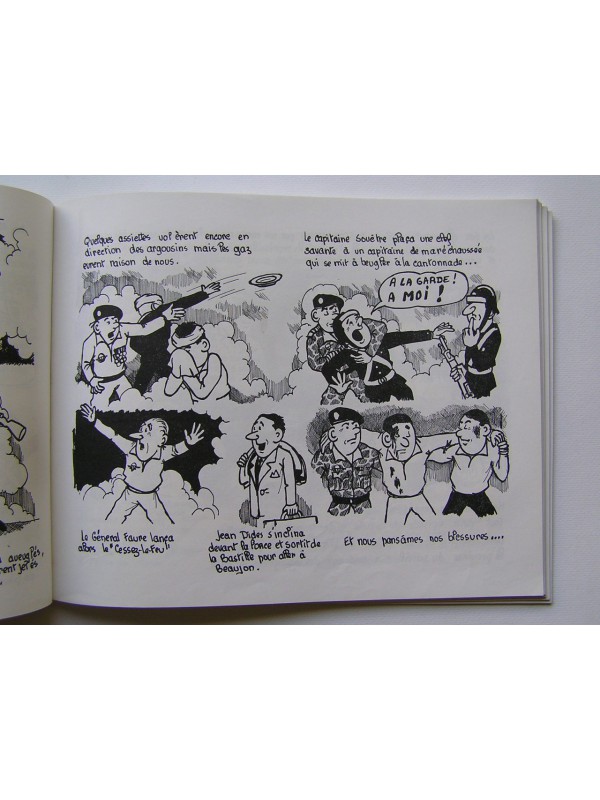 Quelques assiettes volèrent encore en
direction des argousins mais les gaz
eurent raison de nous.
Le capitaine Souètre plaça une clef
savante à un capitaine de maréchaussée
qui se mit à beugler à la cantonnade...
A LA GARDE!
A MOI!
Le Général Faure lança
alors le "Cessez-le-feu"
Jean Dides s'inclina
devant la force et sortit de
la Bastille pour aller à
Beaujon.
Et nous pansâmes nos blessures....
aveuglés,
rent jetés